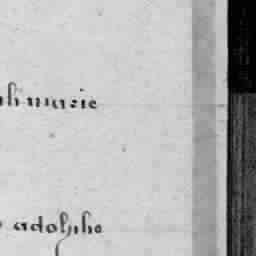 marie
adolphe